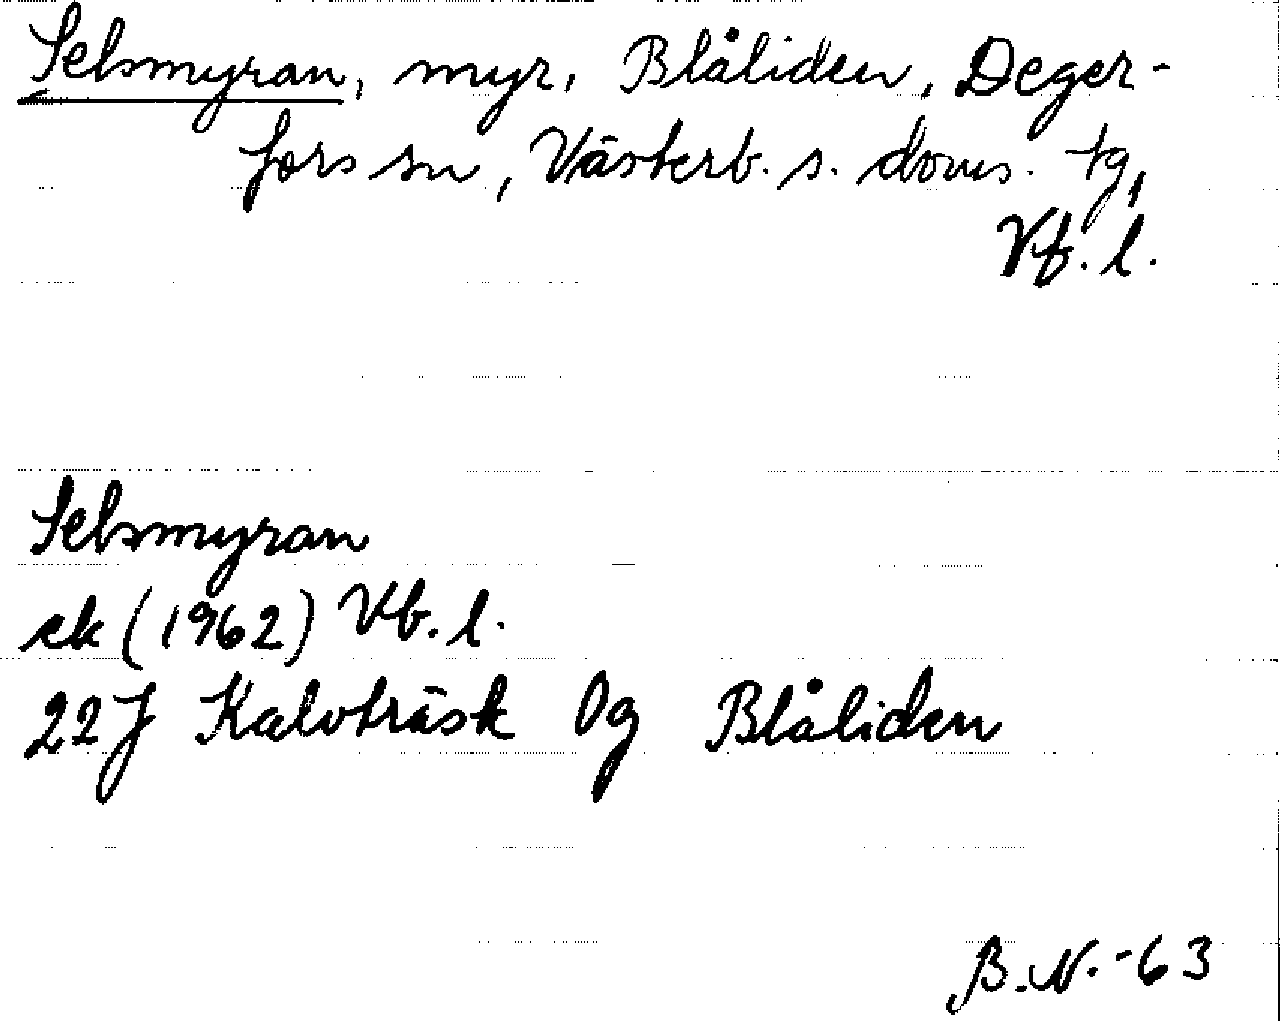 Selsmyran, myr, Blåliden, Deger-
fors sn, Västerb. s. doms. tg,
Vb. l.
Selsmyran
ek (1962) Vb. l.
22J Kalvträsk 0g Blåliden
B.N.-63